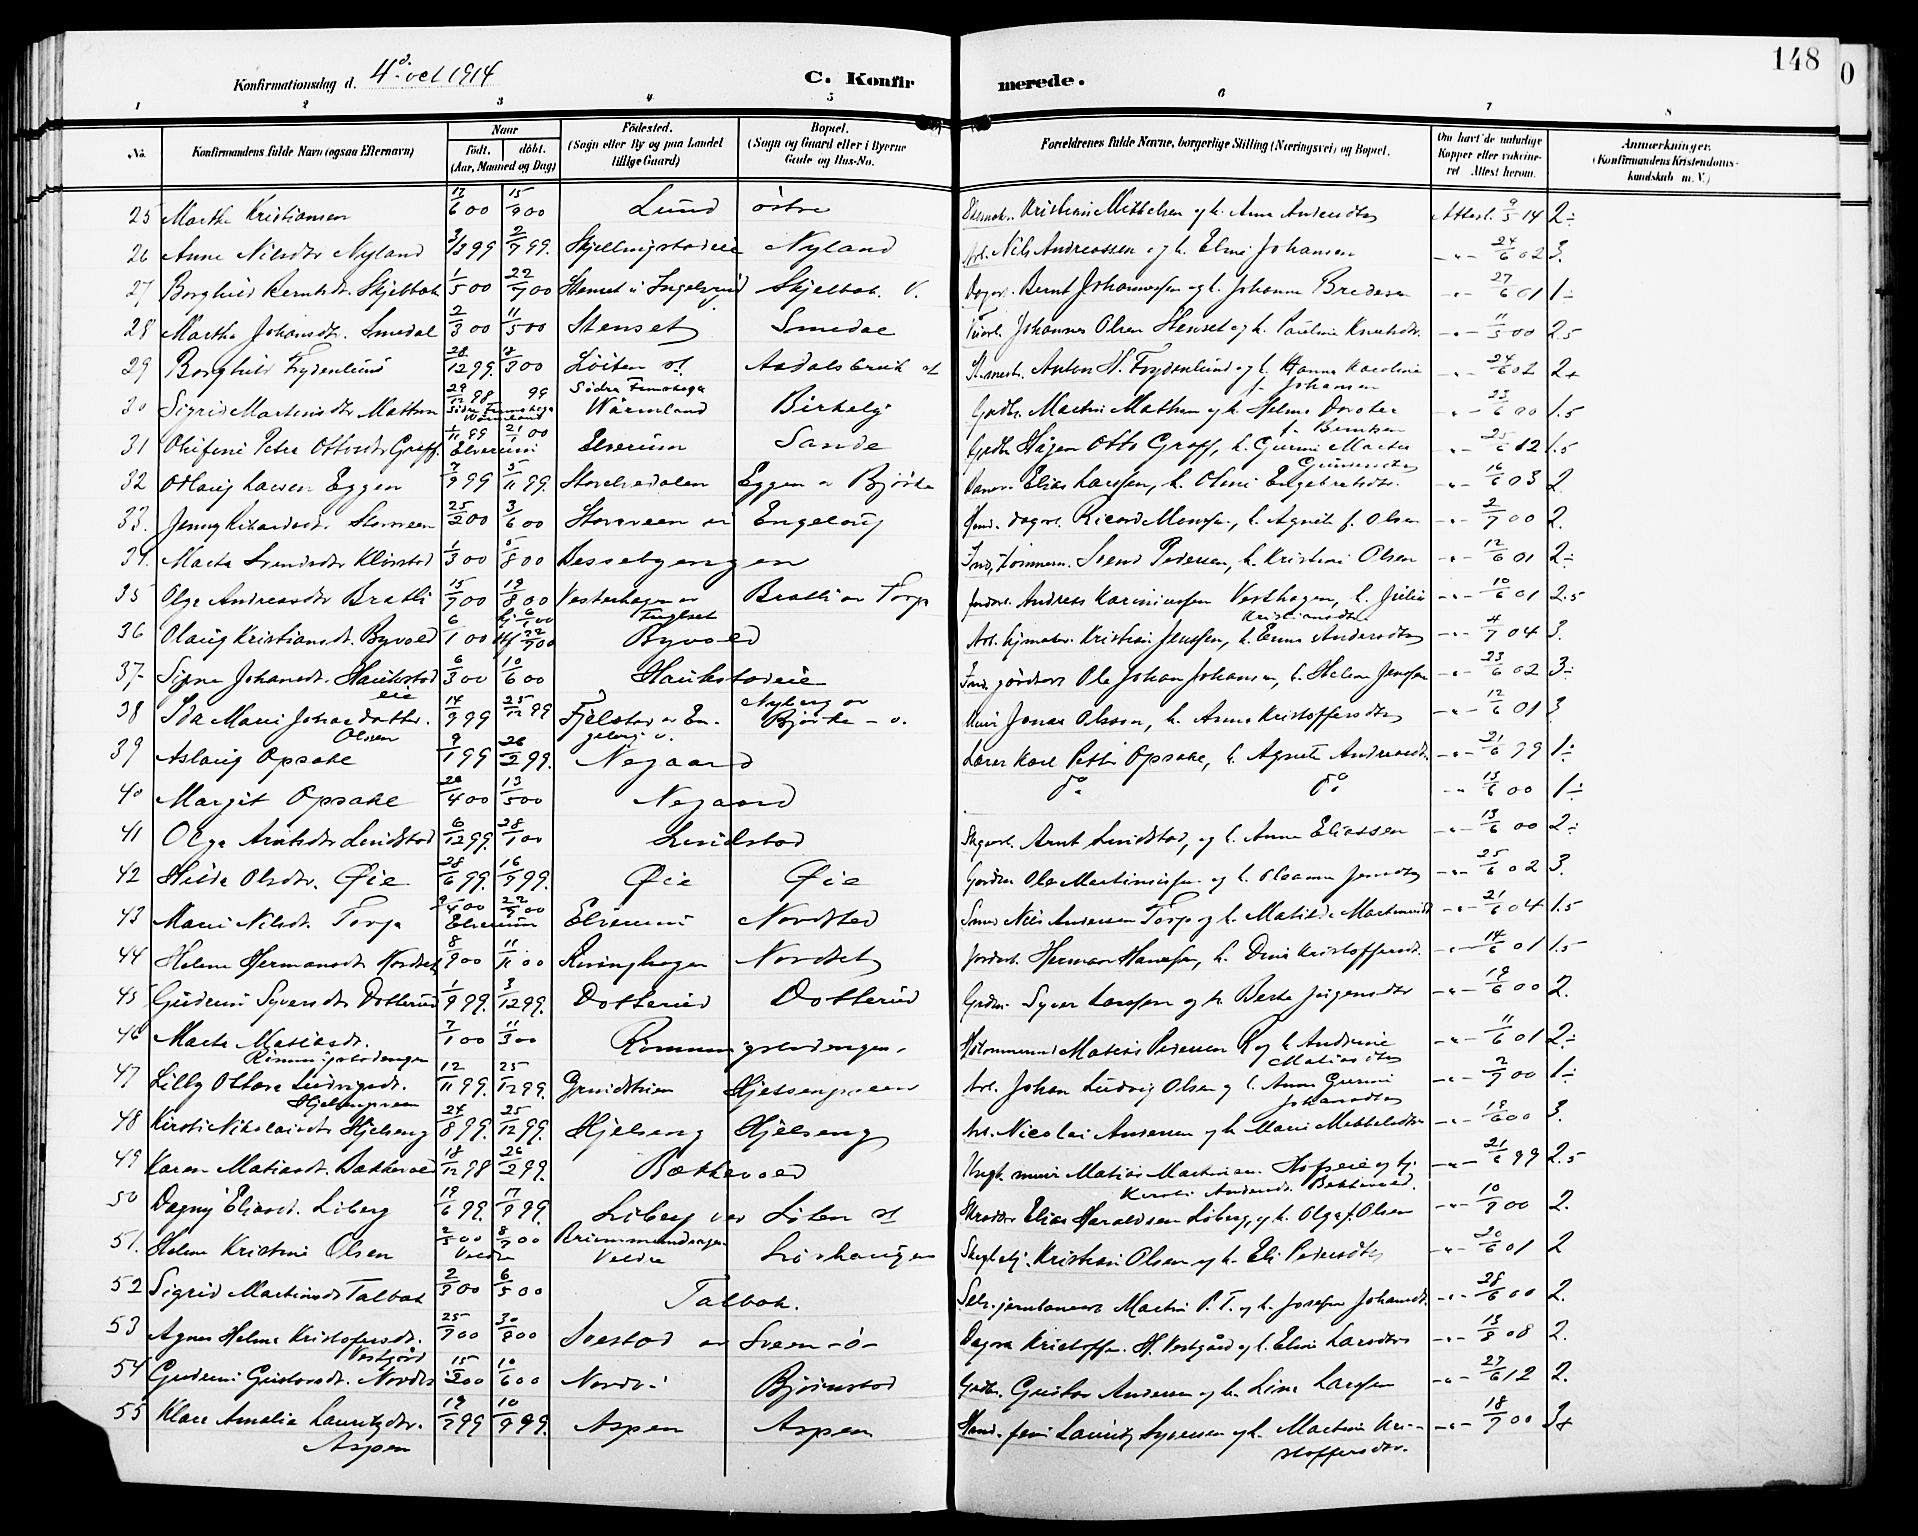 148
0
Konfirmationsdag d. 4de oct 1914 C. Konfirmerede.
1 2 3 4 5 6 7 8
No. Konfirmandens fulde Navn (ogsaa Efternavn) Naar født. døbt. (Aar, Maaned og Dag) Fødested. (Sogn eller By og paa Landet tillige Gaard) Bopæl. (Sogn og Gaard eller i Byerne Gade og Hus-No. Forældrenes fulde Navne, borgerlige Stilling (Næringsvei) og Bopæl. Om havt de naturlige Kopper eller vakcineret. Attest herom. Anmærkninger. (Konfirmandens Kristendomskundskab m. V.)
25 Marthe Kristiansen 17/6 00 15/9 00 Lund østre Kristian Mikkelsen og h. Anne Andersdtr Attest. 9/5 14 2÷
26 Anne Nilsdtr Nyland 99 2/7 99. Skjellingstadeie Nyland Arb. Nils Andreassen og h. Eline Johansen -"- 24/6 02 3.
27 Borghild Berntsdt. Skjelbak 1/5 00 22/7 00 Stenset i Skjelbak. V. Dagar. Bernt Johannessen og h. Johanne Bredesen -"- 27/6 01 1÷
28 Marthe Johansdtr. Smedal 2/3 00 11/5 00 Stenset Smedal Johannes Olsen Stenset og h. Pauline Knutsdtr. -"- 11/5 00 2.5
29 Borghild Frydenlund 28/12 99. 18/3 00 Løiten st. Aadalsbruk st Anton H. Frydenlund og h. Hanna Karoline f. Johansen -"- 24/6 02 2+
30 Sigrid Martinsdtr Matten 29/12 98 99 Södra Finskoga Wärmland Birkely Gaardb. Martin Mathsen og h. Helene Dorothea f. Berntsen -"- 23/6 00 1.5
31 Olufine Petra Ottosdtr Groff. 1/11 99 21/1 00 Elverum Elverum Sande Gaardb. Hågen Otto Groff, h. Gunni Marthe Gunnersdtr -"- 25/6 12 1.5
32 Oslaug Larsen Eggen 7/9 99 5/11 99. Storelvedalen Eggen v Bjørke Elias Larssen, h. Oline Engebretsdtr. -"- 16/6 03 2.
33. Jenny Rikardsdtr Storveen 25/2 00 3/6 00 Storveen v/ Engelaug dagar. Ricard Monssen, h. Agnete f. Olsen -"- 2/7 00 2.
34. Marta Svendsdtr Klevstad 1/3 00 5/8 00 Dessebygengen tømmerm. Svend Pedersen, h. Kristine Olsen -"- 12/6 01 2÷
35 Olga Andreasdtr Bratli 15/7 00 19/8 00 Vesterhagen v Bratli v Torp Andreas Kariniussen Vesthagen, h. Julie Kristiansdtr -"- 10/6 01 2.5
36 Olaug Kristiansdt. Byvold 6/1 00 6/1 00 22/7 00 Byvold Arb. Kristian Jenssen, h. Emma Andersdtr -"- 4/7 04 3.
37 Signe Johansdt. Haukstadeie 6/3 00 10/6 00 Haukstadeie Ole Johan Johansen, h. Helene Jenssen -"- 23/6 02 3÷
38 Ida Marie Johandatter. Olsen 14/9 99 25/12 99 Fjelstad v Engelaug v. Nyberg v Bjørke - v. Murer Jonas Olsson, h. Anne Kristoffersdtr -"- 12/6 01 3
39 Aslaug Opsake 9/1 99 26/2 99. Negaard Lærer Karl Petter Opsake, h. Agnete Andreasdt. -"- 21/6 99 1÷
40 Margit Opsake 20/4 00 13/5 00 Negaard do do -"- 13/6 00 1÷
41 Olga Arntsdtr Lundstad 6/12 99. 28/1 00 Lundstad Arnt Lundstad, og h. Anne Eliassen -"- 13/6 00 2÷
42 Hilda Olsdtr. Øie 28/6 99. 16/9 99. Øie Øie Ole Martiniussen og h. Oleanna Jensdtr -"- 25/6 02 3.
43 Marie Nilsdt. Torp 00 22/7 00 Elverum Elverum Nordstad Smed Nils Andersen Torp og h. Matilde Martinusdt -"- 21/6 04 1.5
44 Helene Hermansdt. Nordset 8/9 00 11/11 00 Nordset Jordar. Herman Hanssen, h. Dina Kristoffersdt. -"- 14/6 01 1.5
45 Gudrun Syversdtr Dotterud 1/9 99. 3/12 99. Dotterud Dotterud Syver Larssen og h. Berte Jørgensdtr -"- 19/6 00 2.
46 Marte Matiasdt. Rømmingstadengen 7/1 00 11/3 00 Rømmingstadengen. Matias Pedersen R og h. Andrine Matiasdtr -"- 11/6 01 2÷
47 Lilly Ottare Ludvigsdt. Hjelsengveen 12/11 99. 25/12 99. Grundstuen Hjelsengveen Arb. Johan Ludvig Olsen og h. Anna Gurine Johansdtr -"- 2/7 00 1÷
48 Kirsti Nikolaisdtr Hjelseng 24/8 99. 25/12 99. Hjelseng Hjelseng Arb. Nicolai Andersen og h. Marie Mikkelsdtr -"- 19/6 00 3.
49 Karen Matiasdt. Bækkevold 18/12 98 26/2 99. Bækkevold Matias Martinsen Hofseie og Kirsti Andersdt. Bækkevold. -"- 21/6 99 2.5
50 Dagny Eliasd. Liberg 19/6 99. 17/9 99. Liberg ved Løten st Skrædder Elias Haraldsen Liberg, og h. Olga f. Olsen -"- 10/9 00 2.
51. Helene Kristine Olsen 2/5 00 8/7 00 Veldre Veldre Kristian Olsen og h. Eli Pedersdtr -"- 20/6 01 2
52 Sigrid Martinsdt Talbak 2/3 00 6/5 00 Talbak. Martin P. T. og h. Josefine Johansdt. -"- 28/6 00 2.
53 Agnes Helene Kristofersdt. Vestgård 25/7 00 30/9 00 Svestad v Sveen -ø- Kristoffer H. Vestgård og h. Eline Larsdtr -"- 13/8 08 2.
54 Gudrun Gustavsdt. Nordvi 15/2 00 10/6 00 Nordvi Bjørnstad Gaardb. Gustav Andersen og h. Lina Larssen -"- 27/6 12 2.
55 Klara Amalie Lauritzdtr. Aspen 19/7 99 10/9 99. Aspen Aspen Lauritz Syversen og h. Martine Kristoffersdtr. -"- 18/7 00 3+